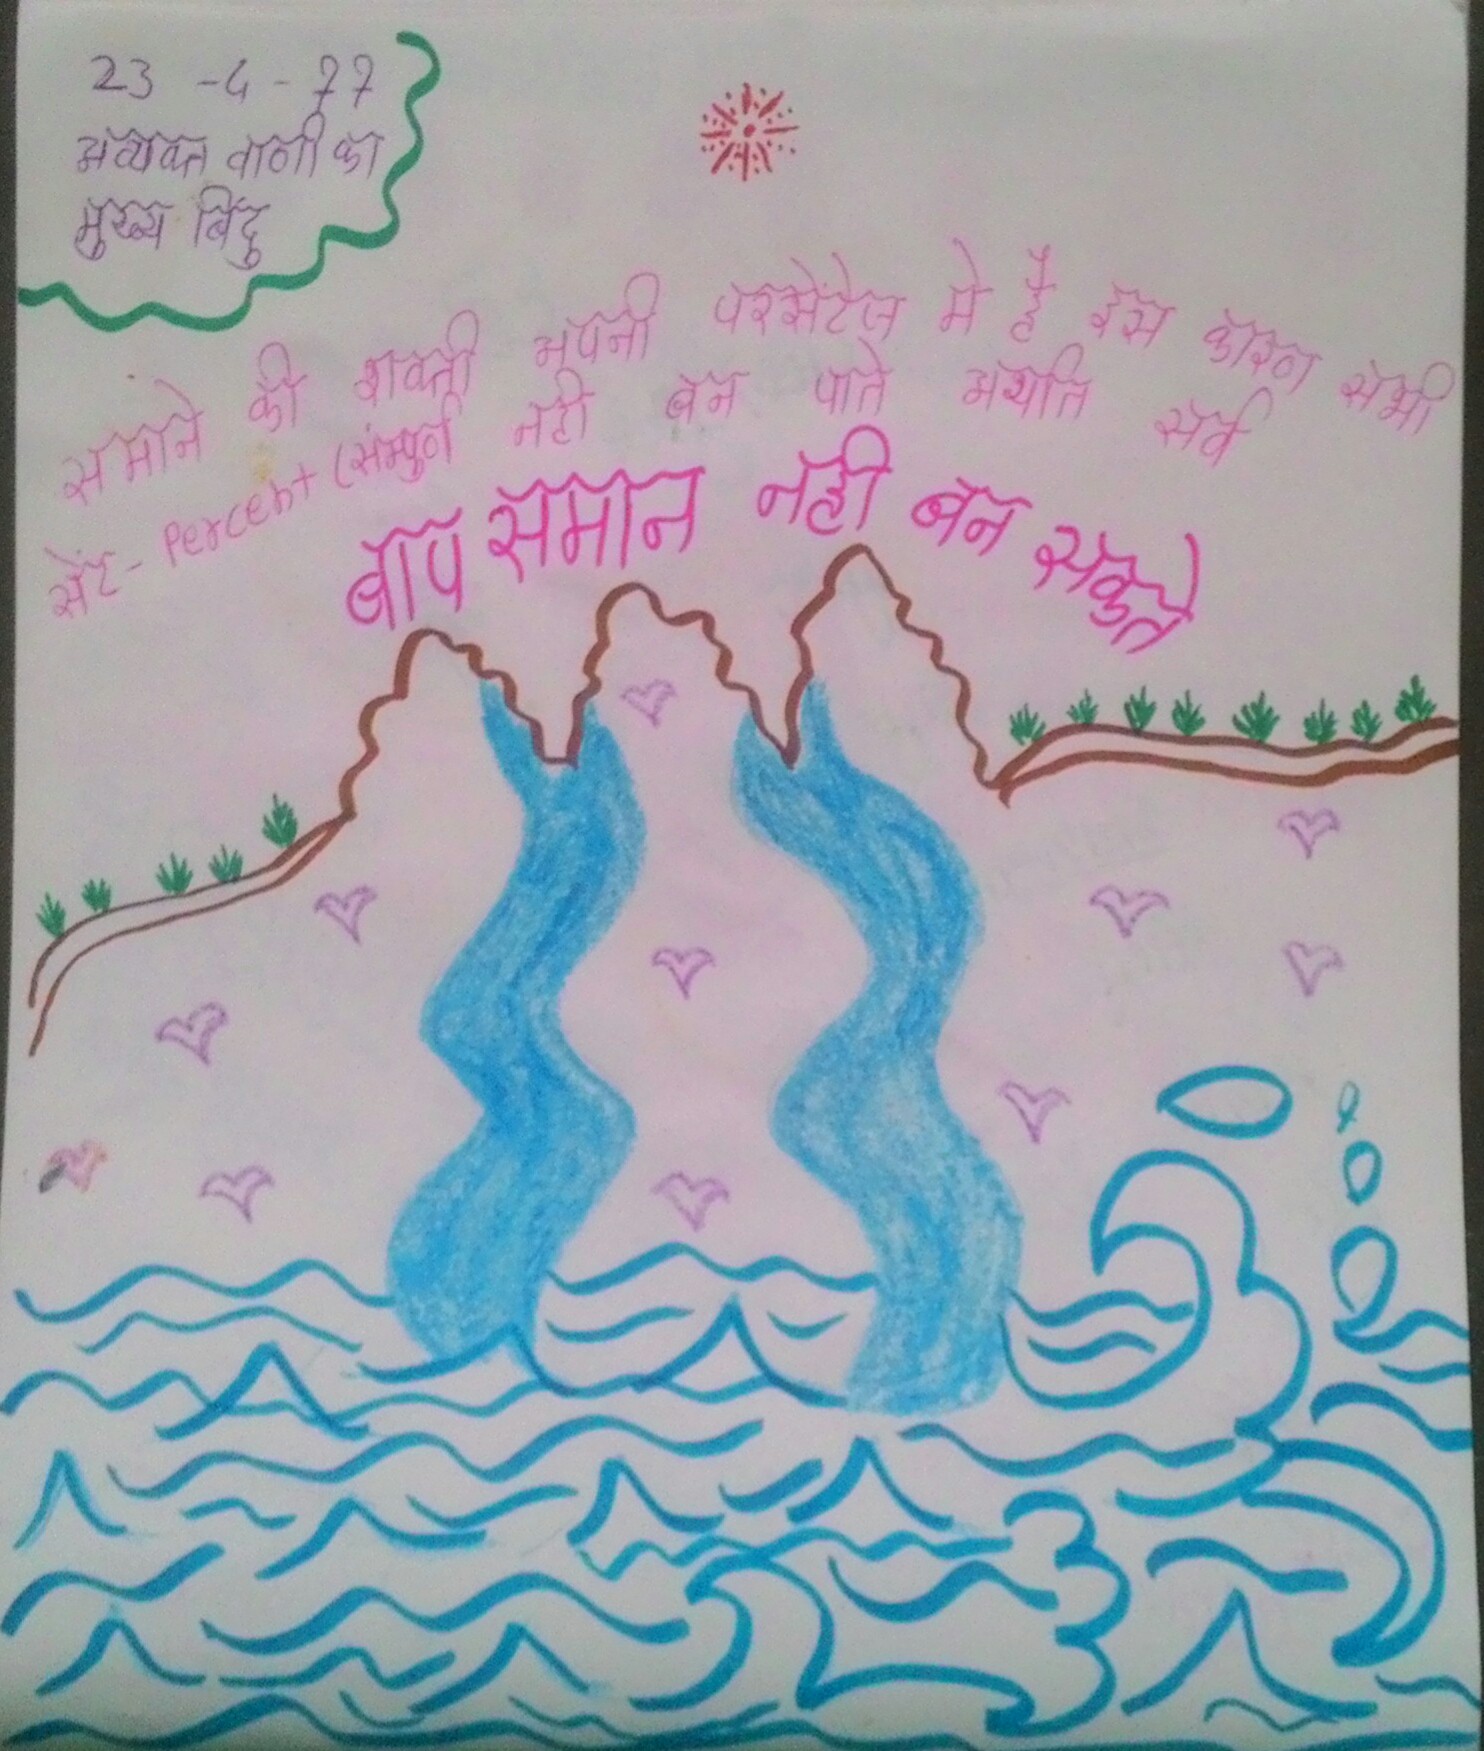 23 -4 - 77
अव्यक्त वाणी का
मुख्य बिंदु
समाने की शक्ती अपनी परसेंटेज मे है इस कारण सभी
सेंट- Percent (संम्पुर्ण नही बन पाते अर्थात सर्व
बाप समान नही बन सकते